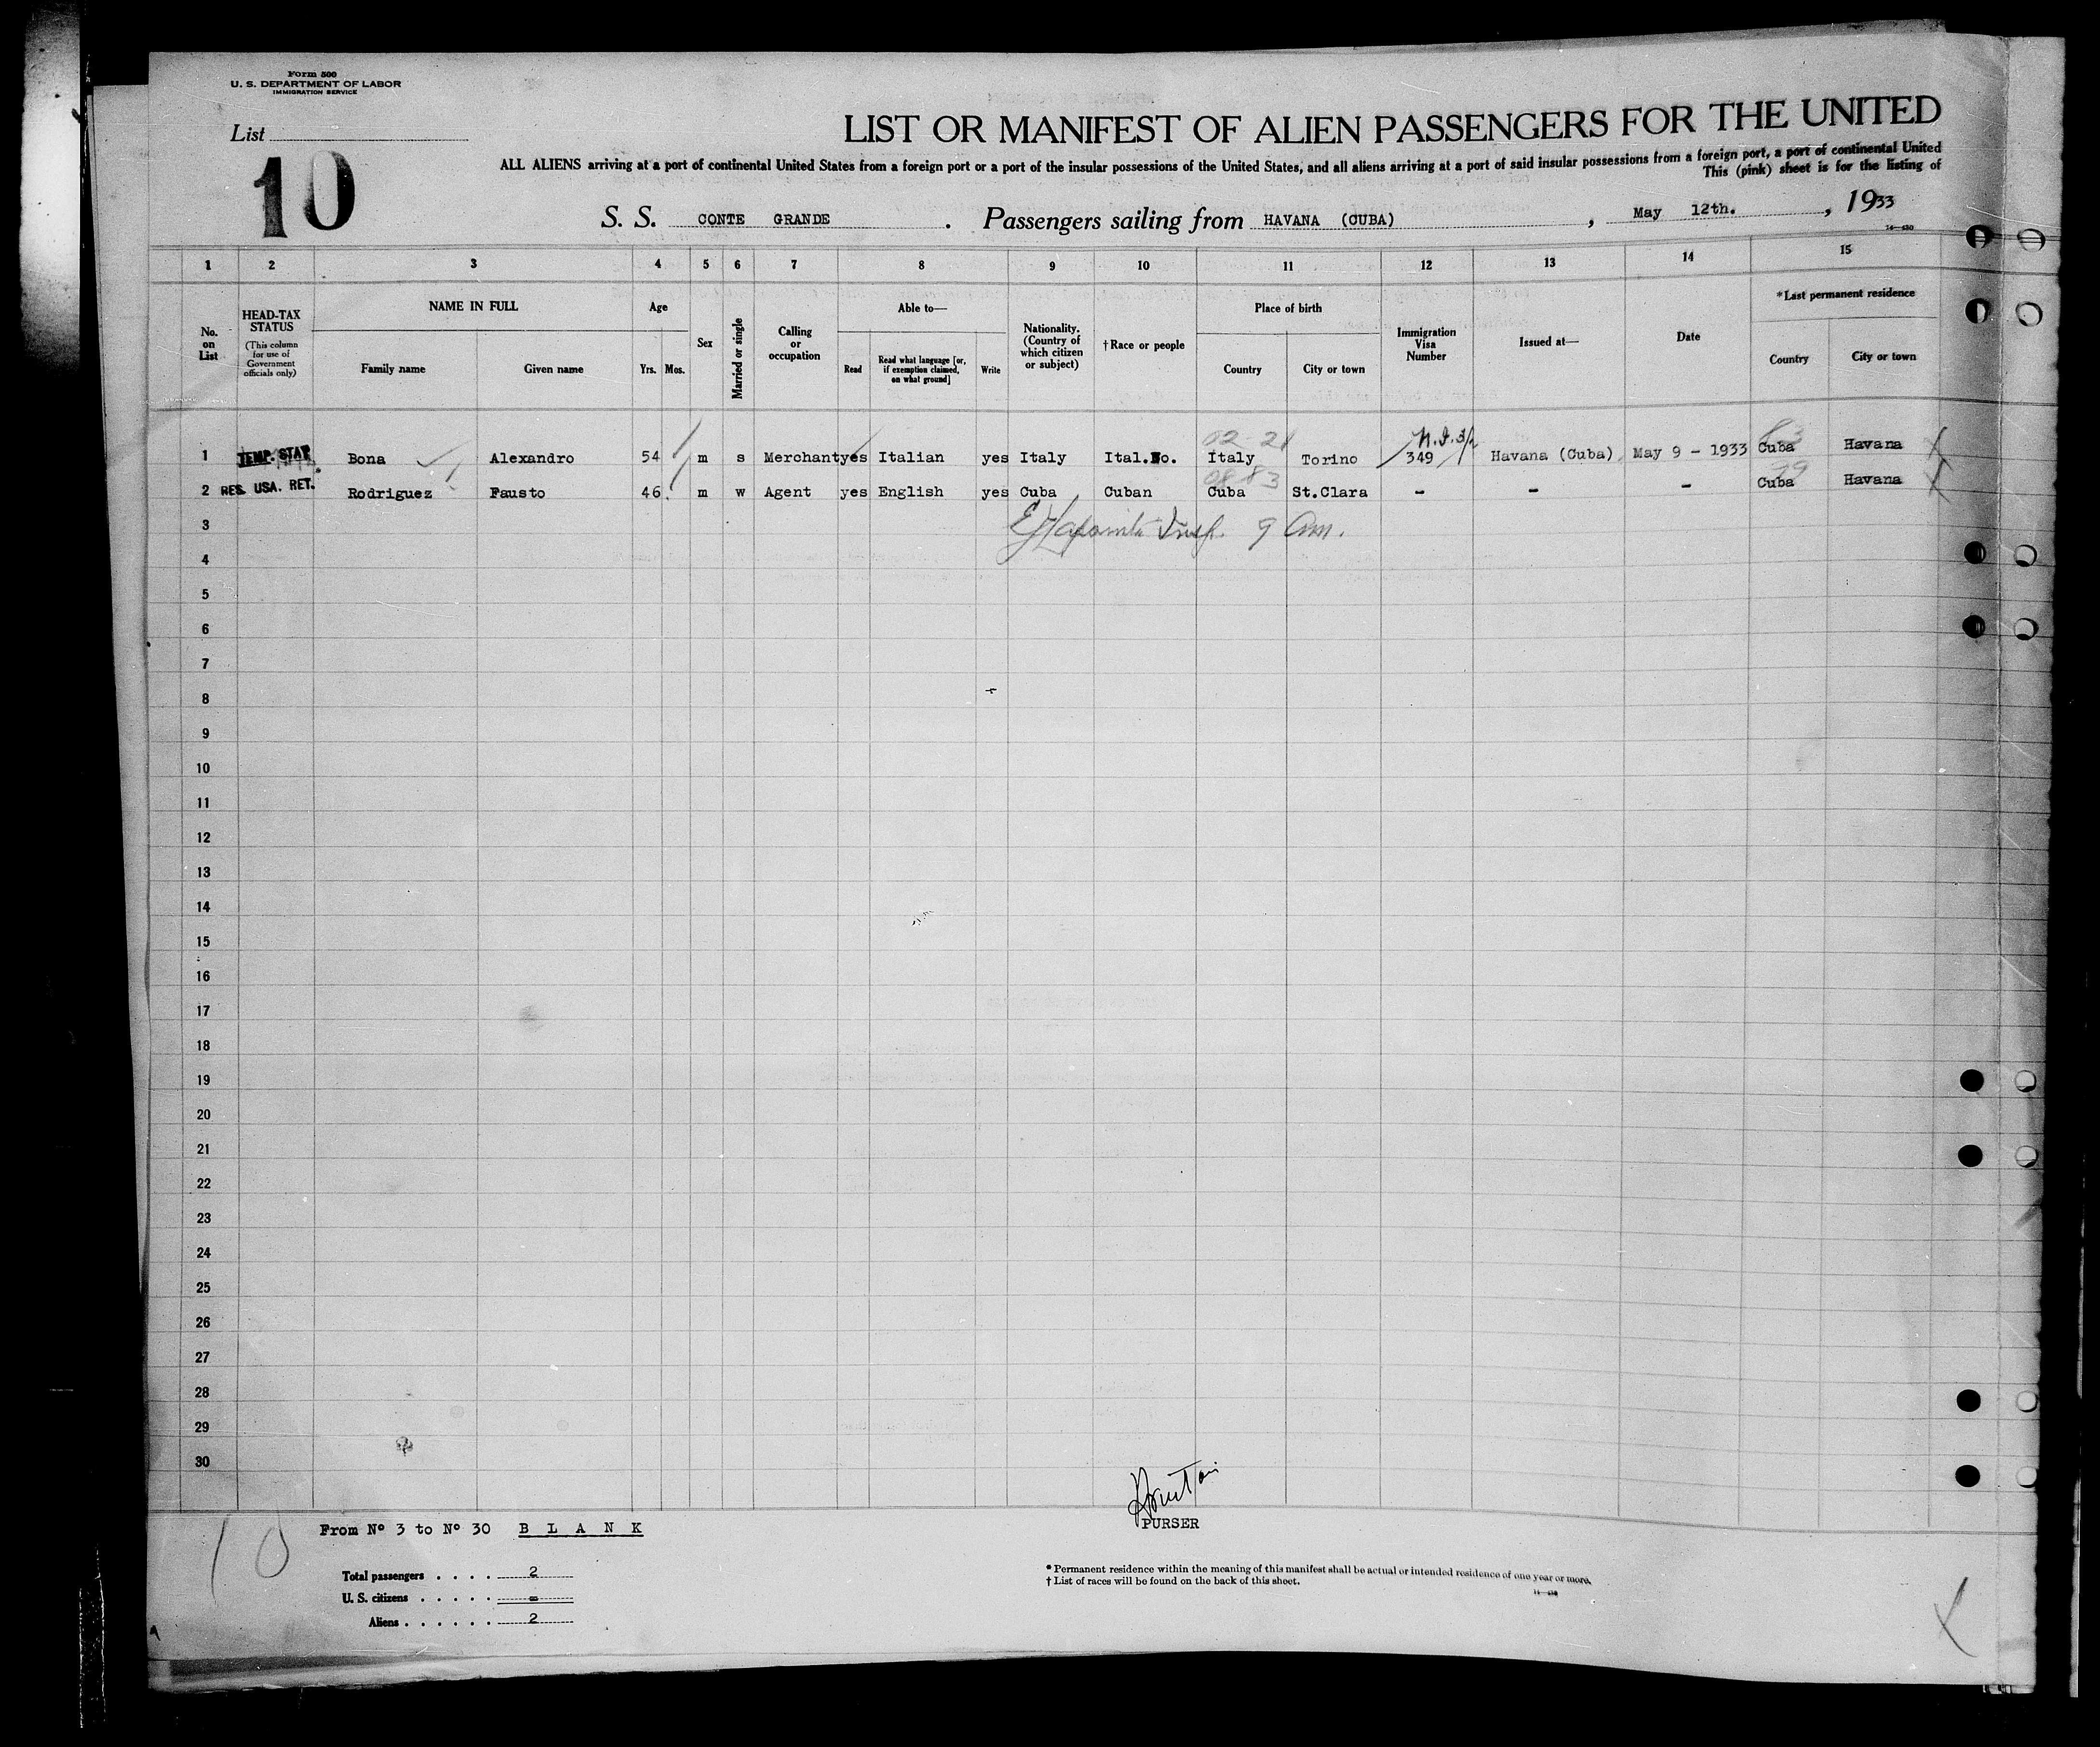 Form 500
U. S. DEPARTMENT OF LABOR
IMMIGRATION SERVICE
List
10
LIST OR MANIFEST OF ALIEN PASSENGERS FOR THE UNITED
ALL ALIENS arriving at a port of continental United States from a foreign port or a port of the insular possessions of the United States, and all aliens arriving at a port of said insular possessions from a foreign port, a port of continental United
This (pink) sheet is for the listing of
S. S. CONTE GRANDE . Passengers sailing from HAVANA (CUBA) , May 12th. , 1933
1 2 3 4 5 6 7 8 9 10 11 12 13 14 15
No. on List
HEAD-TAX STATUS
(This column for use of Government officials only)
NAME IN FULL
Family name Given name
Age
Yrs. Mos.
Sex
Married or single
Calling or occupation
Able to—
Read
Read what language [or, if exemption claimed, on what ground]
Write
Nationality. (Country of which citizen or subject)
†Race or people
Place of birth
Country City or town
Immigration Visa Number
Issued at—
Date
*Last permanent residence
Country City or town
02-21
1 TEMP. STAT Bona Alexandro 54 m s Merchant yes Italian yes Italy Ital.No. Italy Torino 349 Havana (Cuba) May 9 - 1933 Cuba Havana
08 83
2 RES. USA. RET. Rodriguez Fausto 46 m w Agent yes English yes Cuba Cuban Cuba St.Clara - - - Cuba Havana
3
4
5
6
7
8
9
10
11
12
13
14
15
16
17
18
19
20
21
22
23
24
25
26
27
28
29
30
PURSER
From Nº 3 to Nº 30 B L A N K
10
Total passengers . . . . 2
U. S. citizens . . . . . -
Aliens . . . . . . 2
* Permanent residence within the meaning of this manifest shall be actual or intended residence of one year or more.
† List of races will be found on the back of this sheet.